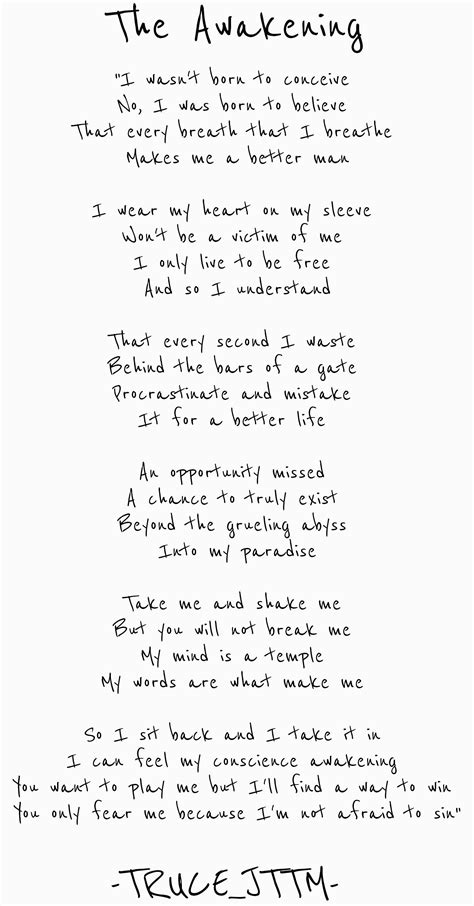 The Awakening
"I wasn't born to conceive
No, I was born to believe
That every breath that I breathe
Makes me a better man
I wear my heart on my sleeve
Won't be a victim of me
I only live to be free
And so I understand
That every second I waste
Behind the bars of a gate
Procrastinate and mistake
It for a better life
An opportunity missed
A chance to truly exist
Beyond the grueling abyss
Into my paradise
Take me and shake me
But you will not break me
My mind is a temple
My words are what make me
So I sit back and I take it in
I can feel my conscience awakening
You want to play me but I'll find a way to win
You only fear me because I'm not afraid to sin"
-TRUCE_JTTM-